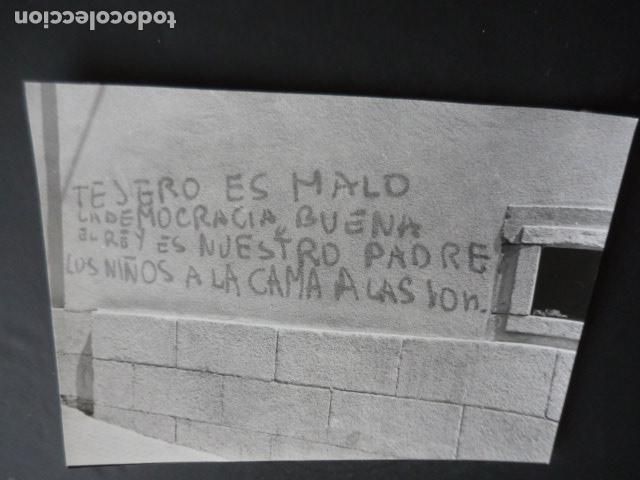 todocoleccion
TEJERO ES MALO
LA DEMOCRACIA BUENA
EL REY ES NUESTRO PADRE
LOS NIÑOS A LA CAMA A LAS 10n.